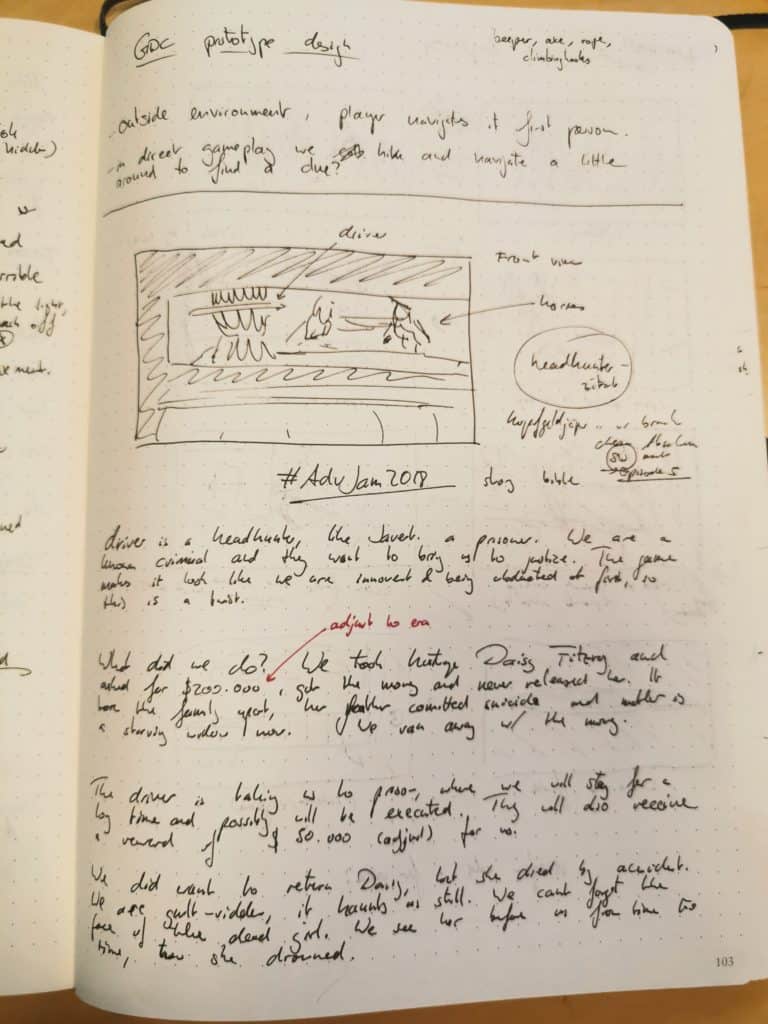 GDC prototype design
beeper, axe, rope,
climbinghooks
- outside environment, player navigates it first person.
- in direct gameplay we hike and navigate a little
around to find a clue?
driver
Front view
horses
headhunter-
#AdvJam2018 story bible
Episode 5
driver is a headhunter, like Javert. a prisoner. We are a
known criminal and they want to bring us to justice. The game
makes it look like we are innocent & being abducted at first, so
this is a twist.
adjust to era
What did we do? We took hostage Daisy and
asked for $200.000, got the money and never released her. It
tore the family apart, her father comitted suicide and mother is
a starving widow now. We ran away w/ the money.
The driver is taking us to prison, where we will stay for a
long time and possibly will be executed. They will also receive
a reward of $50.000 (adjust) for us.
We did want to return Daisy, but she died by accident.
We are guilt-ridden, it haunts us still. We cant forget the
face of the dead girl. We see her before us from time to
time, how she drowned.
103
hidden)
the light,
off